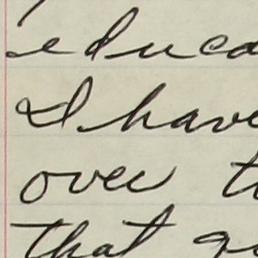 educa
I have
over t
that g